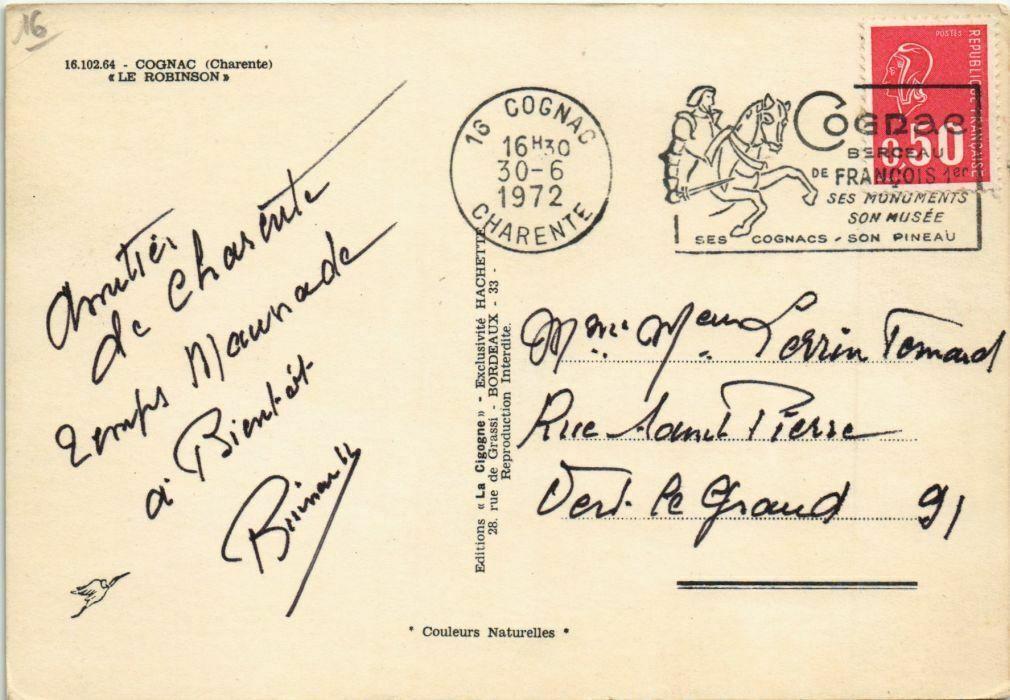 16
16.102.64 - COGNAC (Charente)
« LE ROBINSON »
16 COGNAC
16H30
30-6
1972
CHARENTE
COGNAC
BERCEAU
DE FRANÇOIS 1er
SES MONUMENTS
SON MUSÉE
SES COGNACS - SON PINEAU
POSTES
REPUBLIQUE FRANÇAISE
0,50
Amitiés
de Charente
temps Maussade
à Bientôt
Editions « La Cigogne » - Exclusivité HACHETTE
28, rue de Grassi - BORDEAUX - 33 -
Reproduction Interdite.
Mme Perrin
Rue Saint Pierre
Vert le Grand 91
* Couleurs Naturelles *